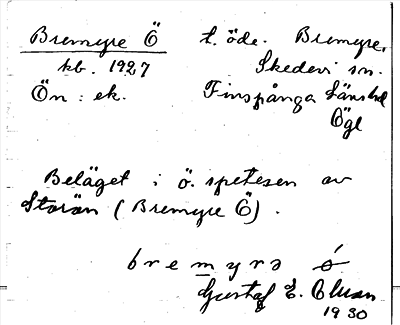 Bremyre Ö t. öde. Bremyre,
kb. 1927 Skedevi sn.
Ön : ek. Finspånga länshd
Ögl
Beläget i ö. spetsen av
Storön (Bremyre Ö).
bremyrə ǿ
Gustaf E. Olsson
1930